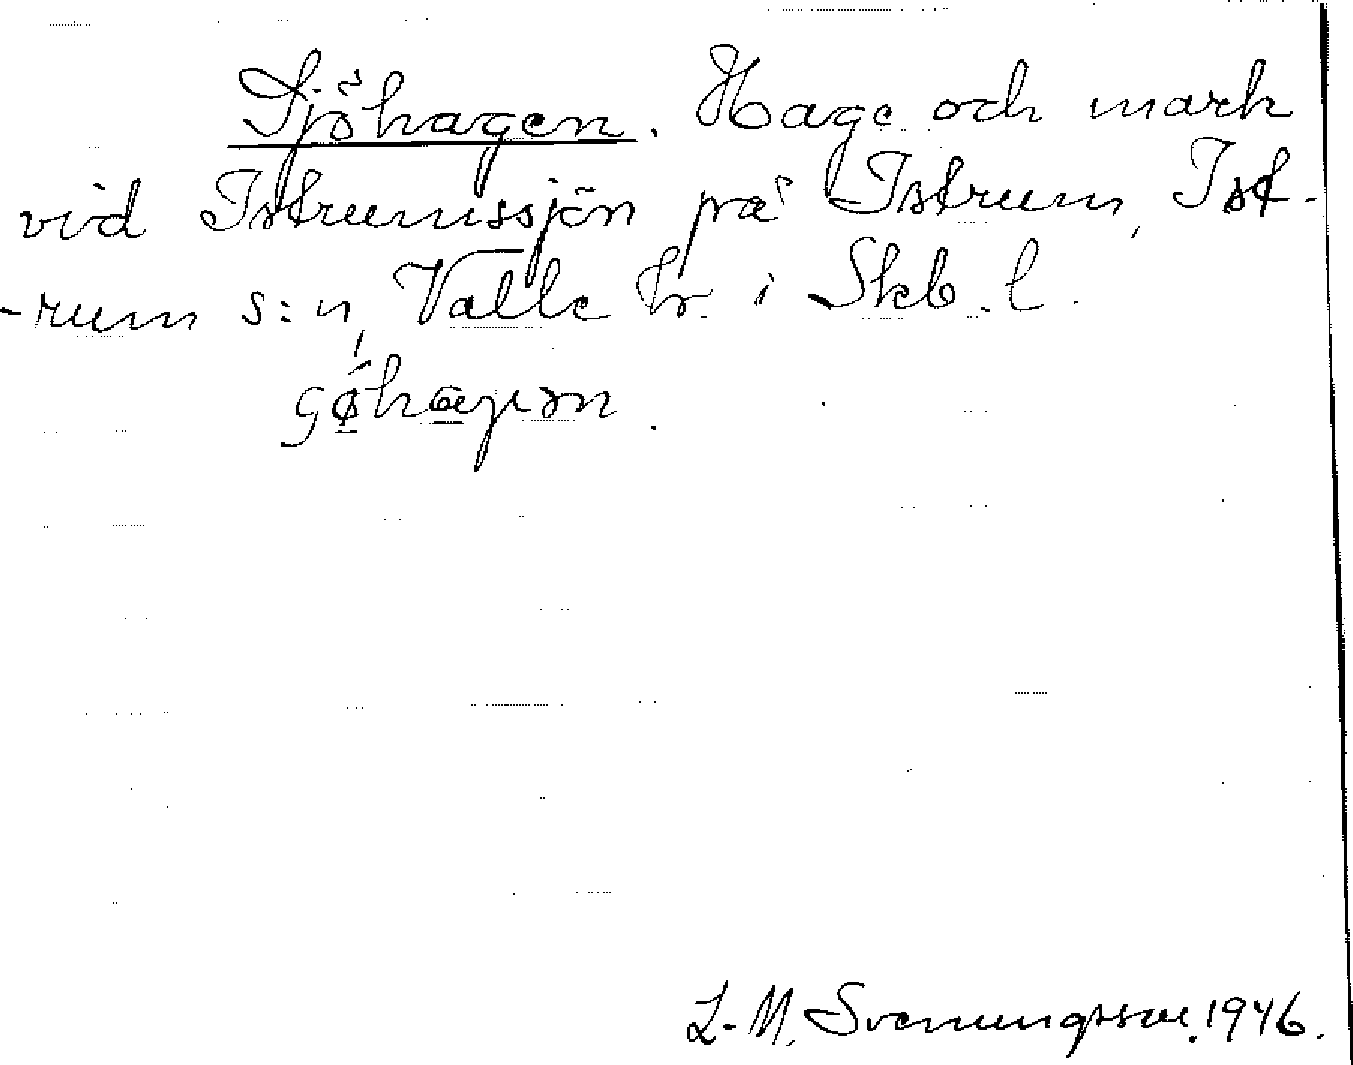 Sjöhagen. Hage och mark
vid Istrumssjön på Istrum, Ist-
-rum s:n, Valle hr. i Skb. l.
L. M. Svenungsson. 1946.